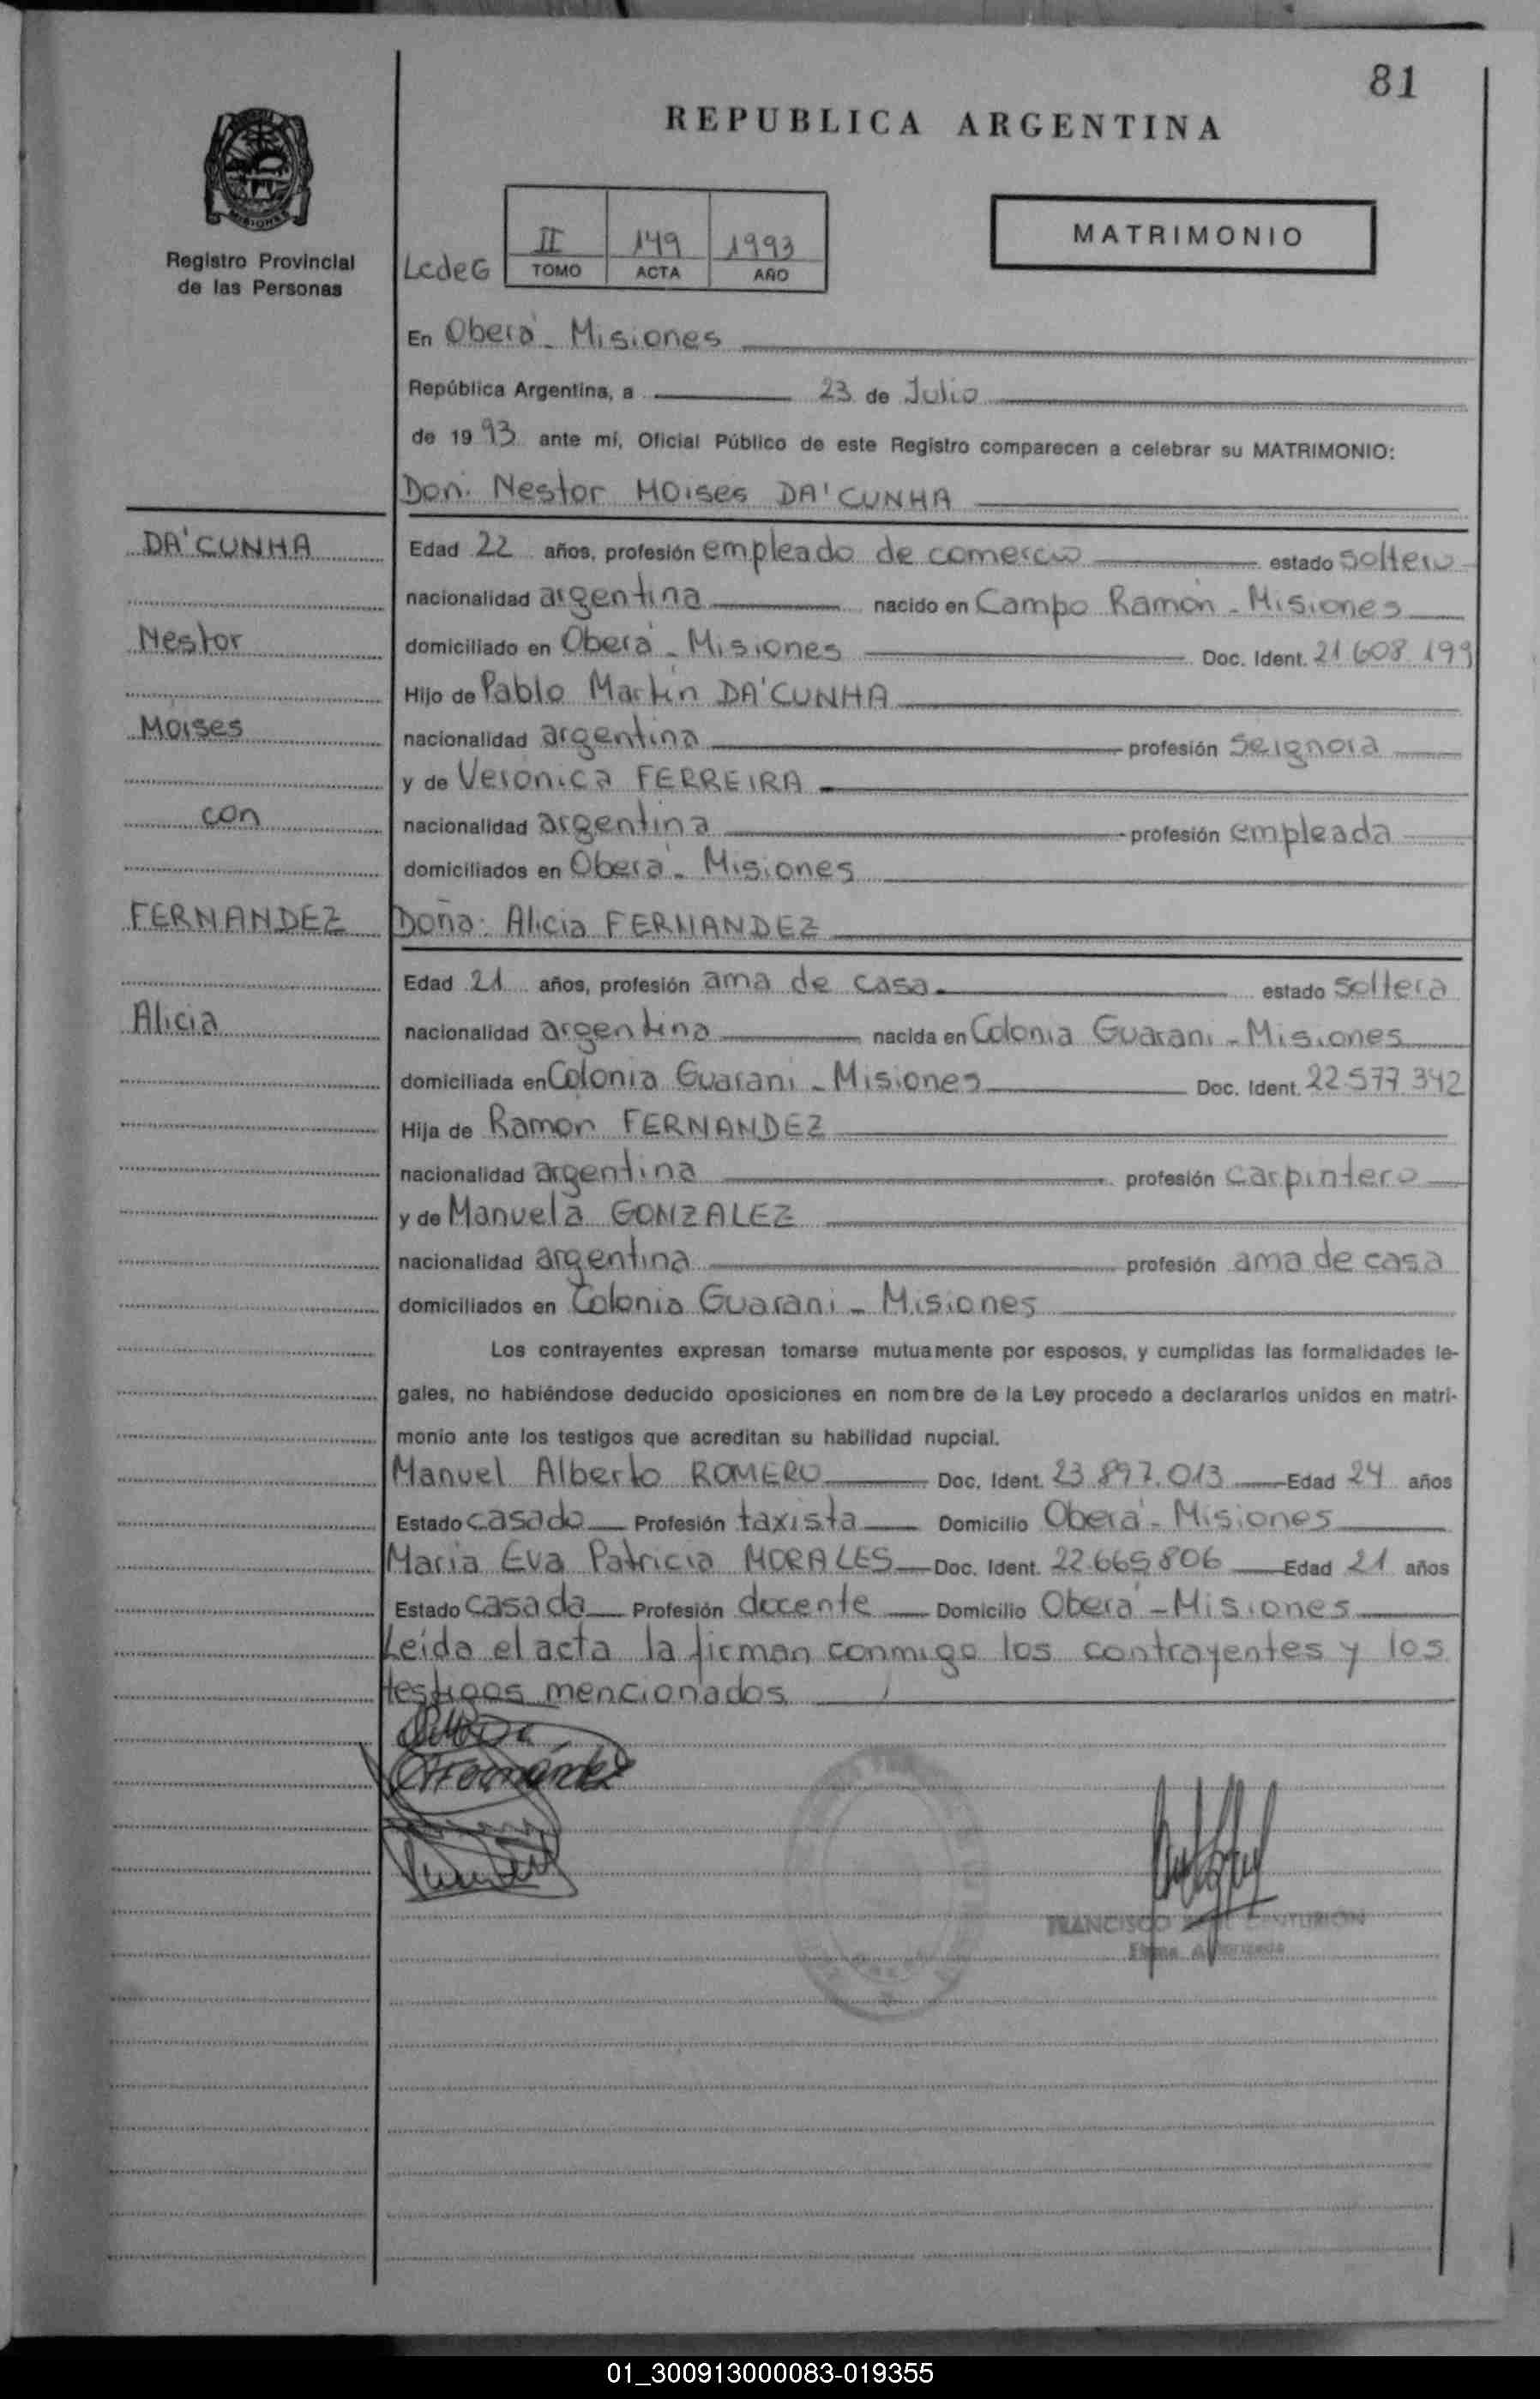 81
REPUBLICA ARGENTINA
MISIONES
Registro Provincial
de las Personas
MATRIMONIO
LcdeG
II 149 1993
TOMO ACTA AÑO
En Oberá - Misiones
República Argentina, a 23 de Julio
de 1993 ante mí, Oficial Público de este Registro comparecen a celebrar su MATRIMONIO:
Don: Nestor Moises DA'CUNHA
DA'CUNHA
Edad 22 años, profesión empleado de comercio estado soltero
nacionalidad argentina nacido en Campo Ramón - Misiones
Nestor
domiciliado en Oberá - Misiones Doc. Ident. 21.608.199
Hijo de Pablo Martin DA'CUNHA
Moises
nacionalidad argentina profesión
y de Veronica FERREIRA
con
nacionalidad argentina profesión empleada
domiciliados en Oberá - Misiones
FERNANDEZ
Doña: Alicia FERNANDEZ
Edad 21 años, profesión ama de casa estado soltera
Alicia
nacionalidad argentina nacida en Colonia Guarani - Misiones
domiciliada en Colonia Guarani - Misiones Doc. Ident. 22.577.342
Hija de Ramon FERNANDEZ
nacionalidad argentina profesión carpintero
y de Manuela GONZALEZ
nacionalidad argentina profesión ama de casa
domiciliados en Colonia Guarani - Misiones
Los contrayentes expresan tomarse mutuamente por esposos, y cumplidas las formalidades le-
gales, no habiéndose deducido oposiciones en nombre de la Ley procedo a declararlos unidos en matri-
monio ante los testigos que acreditan su habilidad nupcial.
Manuel Alberto ROMERO Doc. Ident. 23.897.013 Edad 24 años
Estado casado Profesión taxista Domicilio Oberá - Misiones
Maria Eva Patricia MORALES Doc. Ident. 22.665.806 Edad 21 años
Estado casada Profesión docente Domicilio Oberá - Misiones
Leída el acta la firman conmigo los contrayentes y los
testigos mencionados
Fernández
FRANCISCO CENTURION
Firma Autorizada
01_300913000083-019355